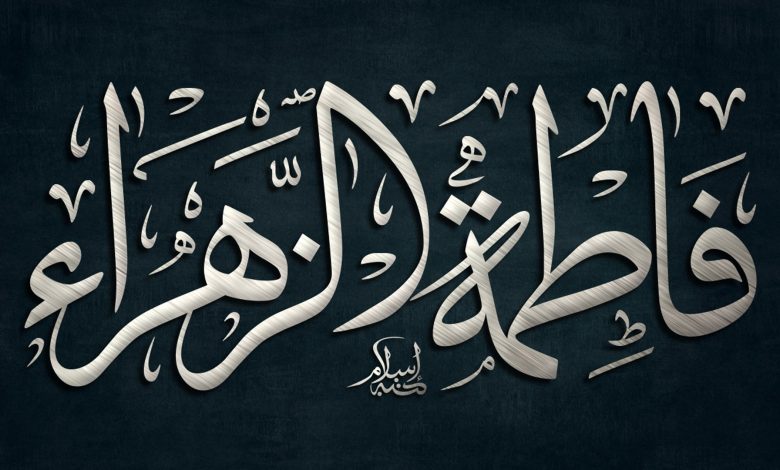 فاطِمة الزَّهراء
كتبه إسلام